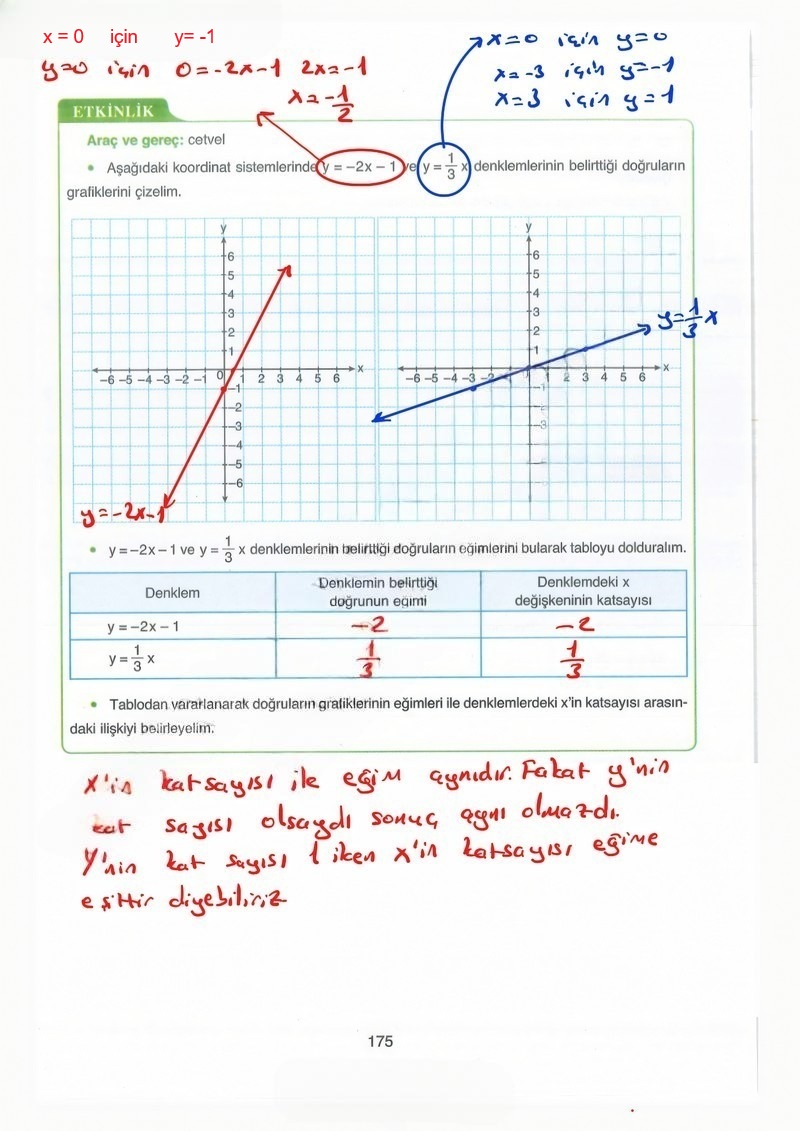 x = 0 için y= -1
x=0 için y=0
y=0 için 0=-2x-1 2x=-1
x=-3 için y=-1
x=-1/2
x=3 için y=1
ETKİNLİK
Araç ve gereç: cetvel
• Aşağıdaki koordinat sistemlerinde y = –2x – 1 ve y = 1/3 x denklemlerinin belirttiği doğruların
grafiklerini çizelim.
y
6
5
4
3
2
1
–6 –5 –4 –3 –2 –1 0 1 2 3 4 5 6 x
–1
–2
–3
–4
–5
–6
y=-2x-1
y
6
5
4
3
2
1
–6 –5 –4 –3 –2 1 2 3 4 5 6 x
–1
–2
–3
y=1/3 x
• y = –2x – 1 ve y = 1/3 x denklemlerinin belirttiği doğruların eğimlerini bularak tabloyu dolduralım.
Denklem
Denklemin belirttiği
doğrunun eğimi
Denklemdeki x
değişkeninin katsayısı
y = –2x – 1 -2 -2
y = 1/3 x 1/3 1/3
• Tablodan yararlanarak doğruların grafiklerinin eğimleri ile denklemlerdeki x'in katsayısı arasın-
daki ilişkiyi belirleyelim.
x'in katsayısı ile eğim aynıdır. Fakat y'nin
kat sayısı olsaydı sonuç aynı olmazdı.
Y'nin kat sayısı 1 iken x'in katsayısı eğime
eşittir diyebiliriz
175